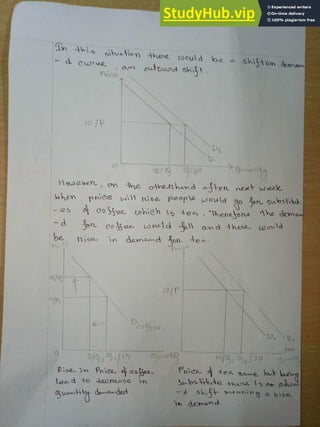 StudyHub.vip
Experienced writers
On-time delivery
100% plagiarism free
In this situation there would be a shift in deman
-d curve, an outward shift.
Price
10/P
D2
D1
0
Quantity
However, on the other hand after next week
when price will rise people would go for substitut
-es of coffee which is tea. Therefore the deman
-d for coffee would fall and there would
be rise in demand for tea.
10/P
D coffee
D1 D2
tea
0
5/Q2 Q1/15
10/Q1 Q2/20
Rise in Price of coffee
lead to decrease in
quantity demanded
Price of tea same but being
substitute there is
-d shift meaning a rise
in demand.